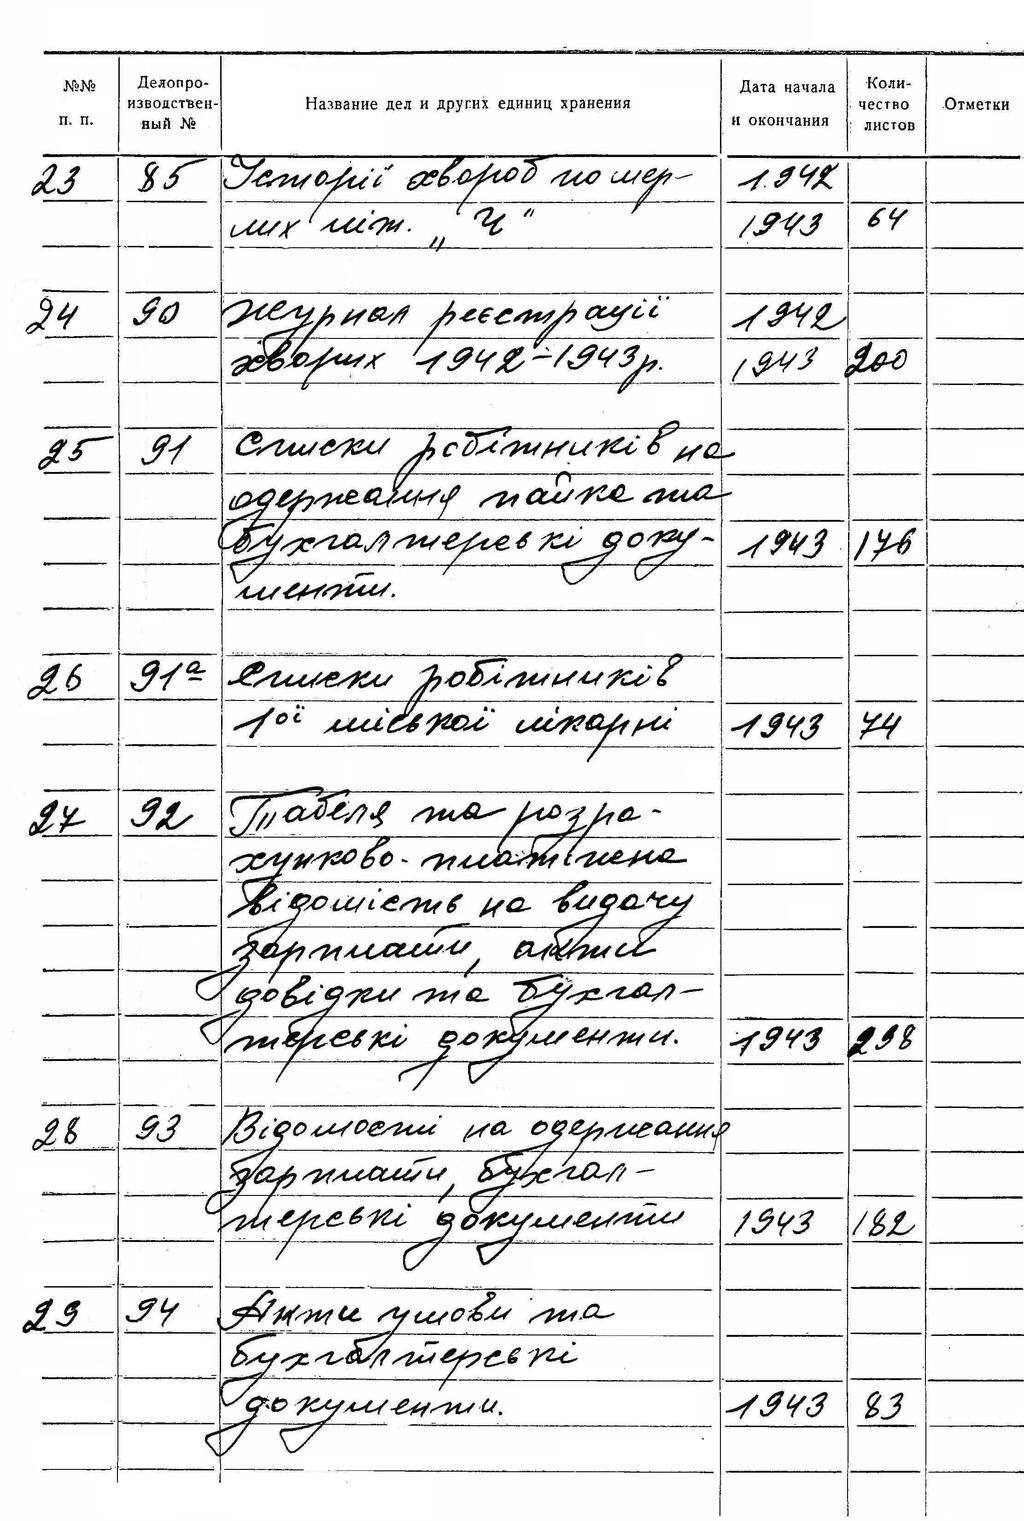 №№ п. п. Делопро-изводствен-ный № Название дел и других единиц хранения Дата начала и окончания Коли-чество листов Отметки
23 85 Історії хвороб помер- 1942
лих літ. „Ч“ 1943 64
24 90 Журнал реєстрації 1942
хворих 1942-1943 р. 1943 200
25 91 Списки робітників на
одержання пайка та
бухгалтерські доку- 1943 176
менти.
26 91а Списки робітників
1ої міської лікарні 1943 74
27 92 Табеля та розра-
хунково-платіжна
відомість на видачу
зарплати, акти
довідки та бухгал-
терські документи. 1943 298
28 93 Відомості на одержання
зарплати, бухгал-
терські документи 1943 182
29 94 Акти умови та
бухгалтерські
документи. 1943 83